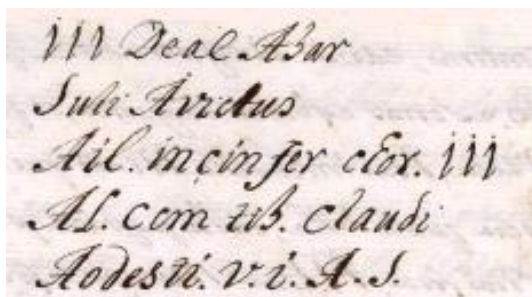 III Deal Abar
Suli Avictus
Ail. incinfer ctor. III
Al. Com tib. Claudi
Aodesti. v. i. A. S.